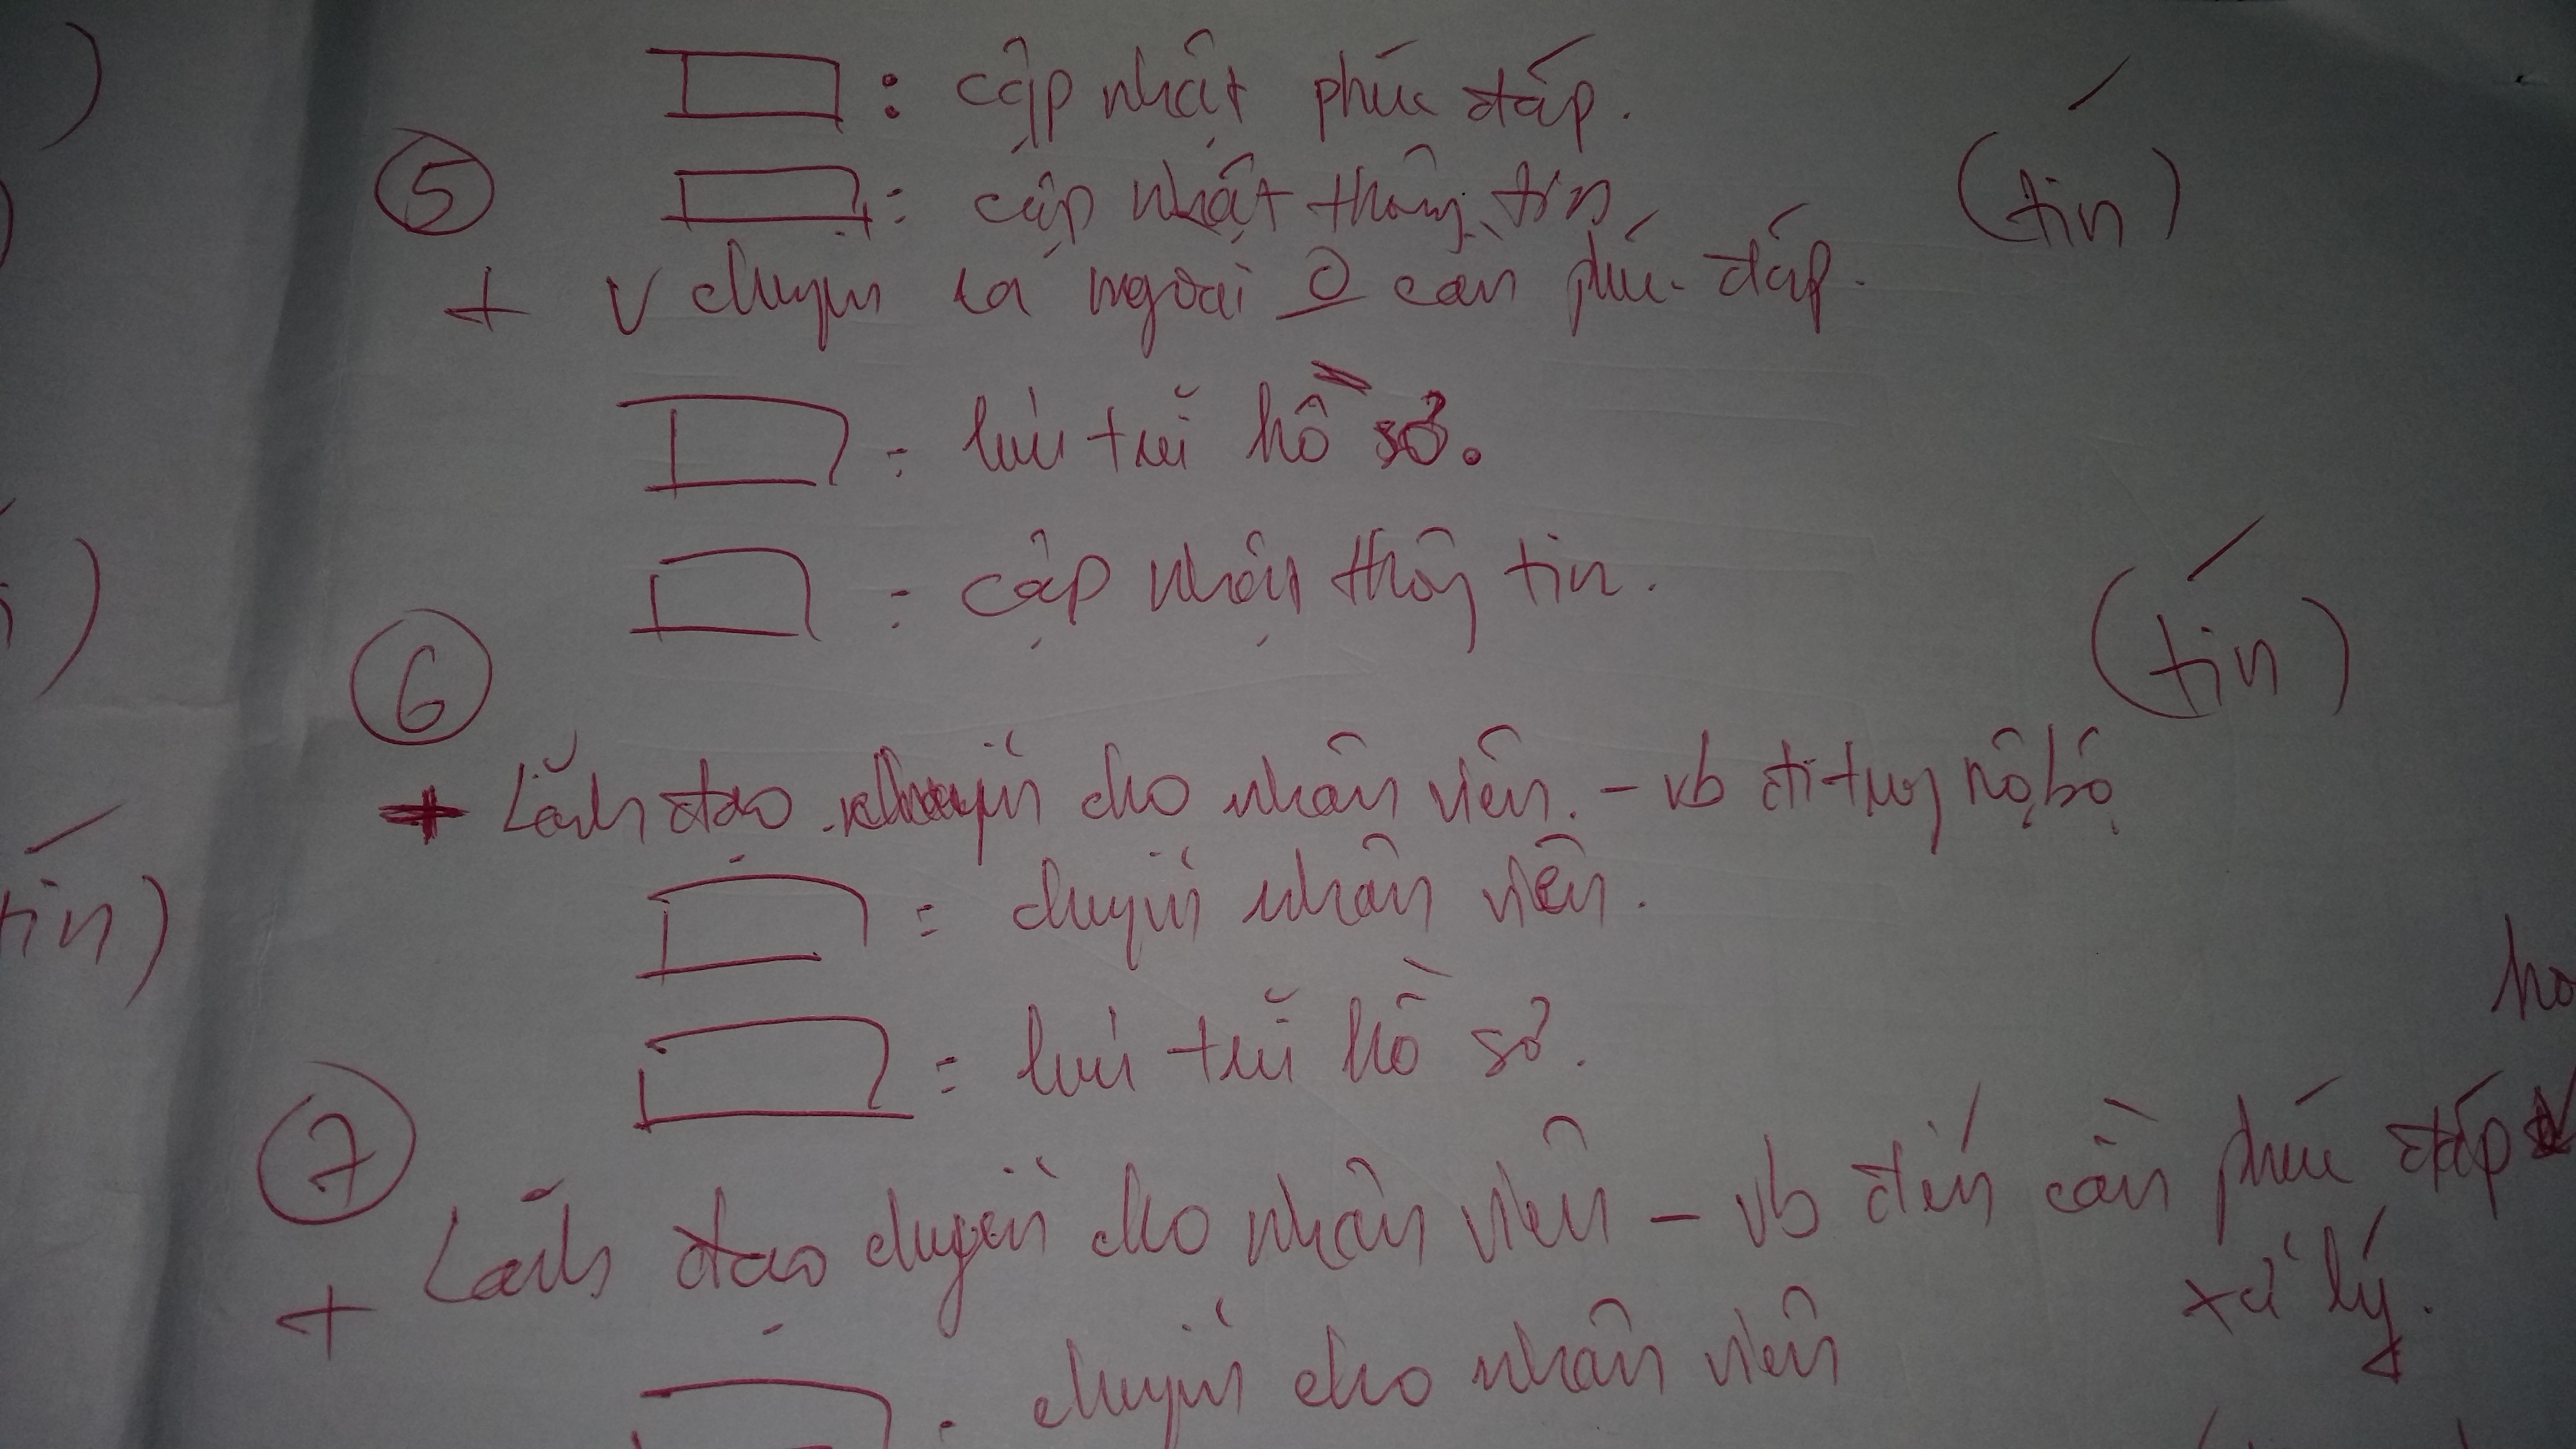 : cập nhật phúc đáp.
⑤
: cập nhật thông tin
(tín)
+ v chuyển ra ngoài 0 cần phúc đáp.
: lưu trữ hồ sơ.
: cập nhật thông tin.
⑥
(tín)
+ Lãnh đạo chuyển cho nhân viên. - vb đi trong nội bộ
: chuyển nhân viên.
: lưu trữ hồ sơ.
⑦
+ Lãnh đạo chuyển cho nhân viên - vb đến cần phúc đáp
xử lý.
: chuyển cho nhân viên
tín)